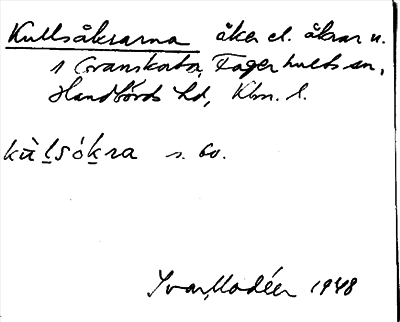 Kullsåkrarna åker el. åkrar u.
1 Granskorta, Fagerhults sn,
Handbörds hd, Klm. l.
kùḻsókra s. bv.
Ivar Modéer 1948